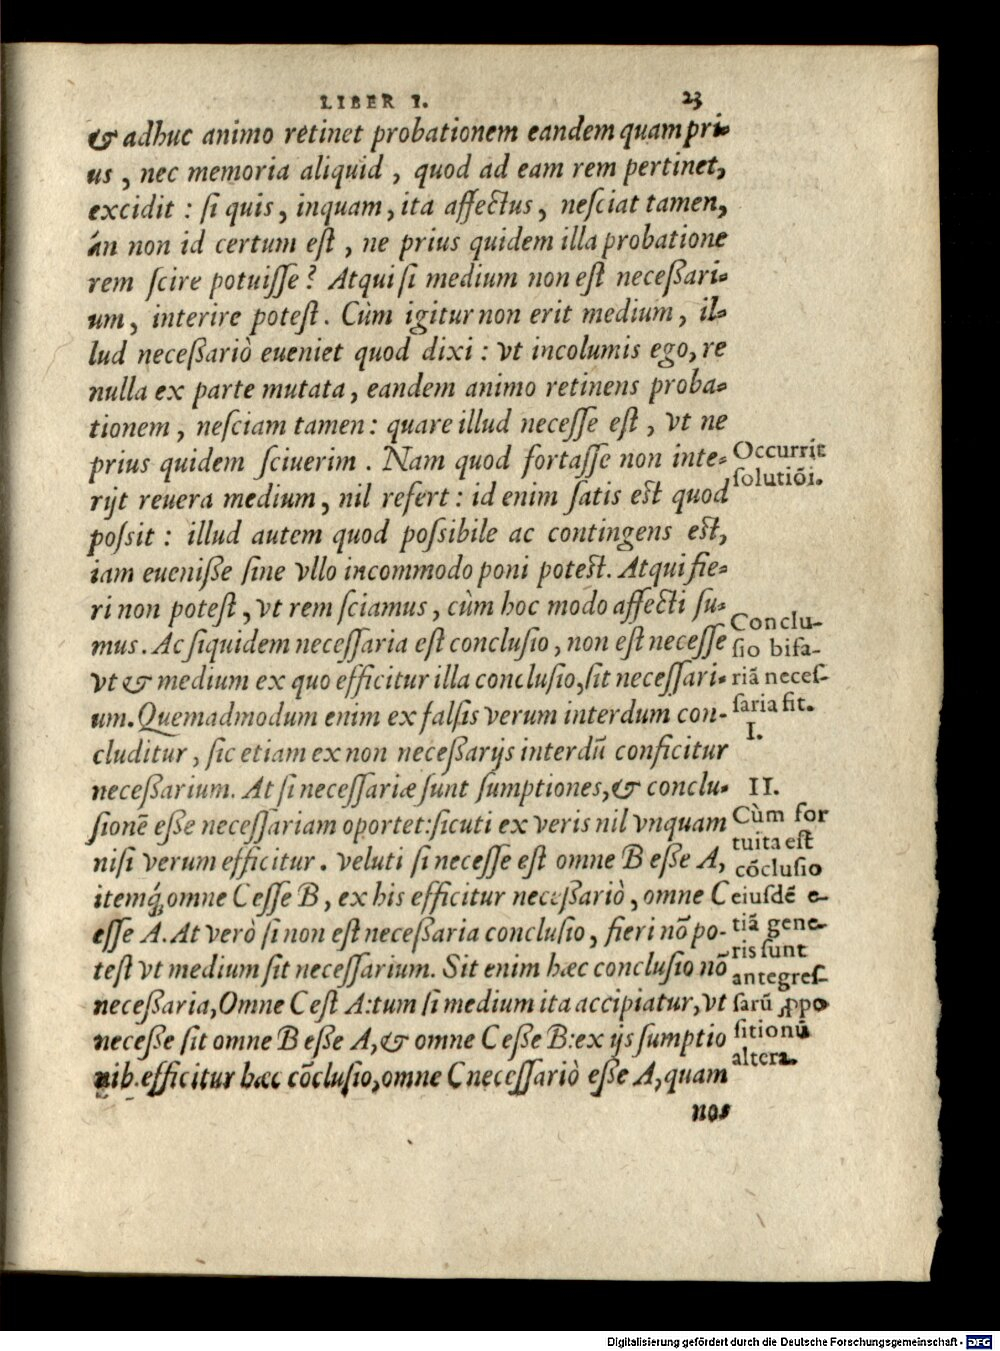 LIBER I. 23
& adhuc animo retinet probationem eandem quam pri-
us, nec memoria aliquid, quod ad eam rem pertinet,
excidit: ſi quis, inquam, ita affectus, neſciat tamen,
án non id certum eſt, ne prius quidem illa probatione
rem ſcire potuiſſe? Atqui ſi medium non eſt neceßari-
um, interire poteſt. Cùm igitur non erit medium, il-
lud neceßariò eueniet quod dixi: vt incolumis ego, re
nulla ex parte mutata, eandem animo retinens proba-
tionem, neſciam tamen: quare illud neceſſe eſt, vt ne
prius quidem ſciuerim. Nam quod fortaſſe non inte-
rijt reuera medium, nil refert: id enim ſatis eſt quod
poſsit: illud autem quod poſsibile ac contingens eſt,
iam eueniße ſine vllo incommodo poni poteſt. Atqui fie-
ri non poteſt, vt rem ſciamus, cùm hoc modo affecti ſu-
mus. Ac ſiquidem neceſſaria eſt concluſio, non eſt neceſſe
vt & medium ex quo efficitur illa concluſio, ſit neceſſari-
um. Quemadmodum enim ex falſis verum interdum con-
cluditur, ſic etiam ex non neceßarijs interdũ conficitur
neceßarium. At ſi neceſſariæ ſunt ſumptiones, & conclu-
ſionẽ eße neceſſariam oportet: ſicuti ex veris nil vnquam
niſi verum efficitur. veluti ſi neceſſe eſt omne B eße A,
itemq́; omne C eſſe B, ex his efficitur neceßariò, omne C
eſſe A. At verò ſi non eſt neceßaria concluſio, fieri nõ po-
teſt vt medium ſit neceſſarium. Sit enim hæc concluſio nõ
neceßaria, Omne C eſt A: tum ſi medium ita accipiatur, vt
neceße ſit omne B eße A, & omne C eße B: ex ijs ſumptio
nib. efficitur hæc cõcluſio, omne C neceſſariò eße A, quam
nos
Occurrit
ſolutiõi.
Conclu-
ſio bifa-
riã neceſ-
ſaria fit.
I.
II.
Cùm for
tuita eſt
cõcluſio
eiuſdẽ e-
tiã gene-
ris ſunt
antegreſ-
ſarũ ꝓpo
ſitionũ
altera.
Digitalisierung gefördert durch die Deutsche Forschungsgemeinschaft - DFG